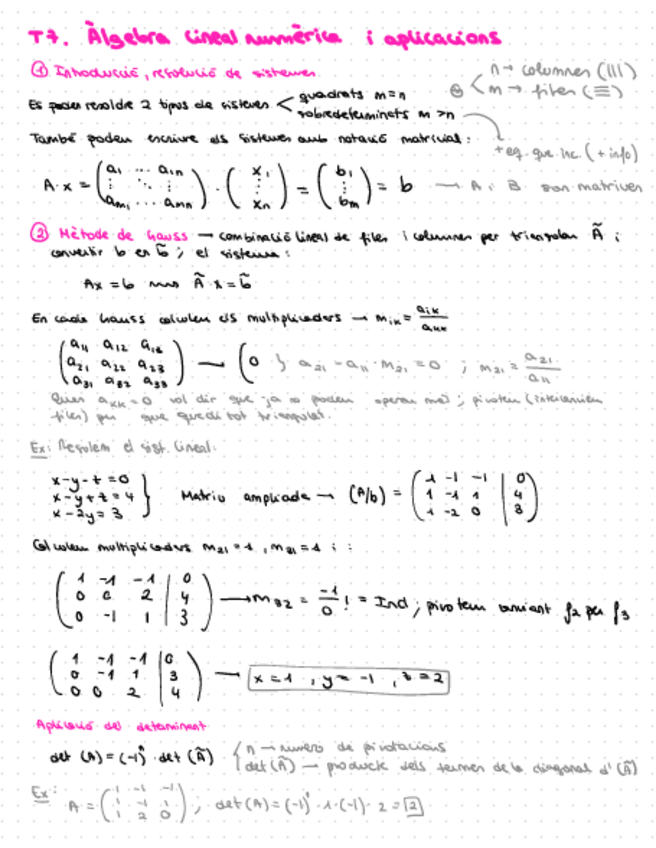 T7. Àlgebra lineal numèrica i aplicacions
① Introducció, resolució de sistemes
n → columnes (|||)
m → files (≡)
Es poden resoldre 2 tipus de sistemes < quadrats m=n
sobredeterminats m>n
+ eq. que inc. (+ info)
També podem escriure els sistemes amb notació matricial:
A·x = (a₁ ... a₁ₙ ⋮ ⋱ ⋮ aₘ₁ ... aₘₙ) · (x₁ ⋮ xₙ) = (b₁ ⋮ bₘ) = b — A i B son matrius
② Mètode de Gauss → combinació lineal de files i columnes per triangular Ã i
convertir b en b̃; el sistema:
Ax = b ⟿ Ã·x = b̃
En cada Gauss calculem els multiplicadors → mᵢₖ = aᵢₖ/aₖₖ
(a₁₁ a₁₂ a₁₃
a₂₁ a₂₂ a₂₃
a₃₁ a₃₂ a₃₃) → (0 } a₂₁ - a₁₁·m₂₁ = 0 ; m₂₁ = a₂₁/a₁₁
Quan aₖₖ = 0 vol dir que ja no podem operar més; pivotem (intercanviem
files) per que quedi tot triangulat.
Ex: Resolem el sist. lineal:
x-y-z=0
x-y+z=4
x-2y=3 } Matriu ampliada → (A/b) = (1 -1 -1 | 0
1 -1 1 | 4
1 -2 0 | 3)
Calculem multiplicadors m₂₁=1, m₃₁=1 i:
(1 -1 -1 | 0
0 0 2 | 4
0 -1 1 | 3) → m₃₂ = -1/0 ! = Ind; pivotem canviant f₂ per f₃
(1 -1 -1 | 0
0 -1 1 | 3
0 0 2 | 4) → x=1, y=-1, z=2
Aplicació del determinant
det (A) = (-1)ⁿ · det (Ã) { n → numero de pivotacions
det(Ã) → producte dels termes de la diagonal d'(Ã)
Ex: A = (1 -1 -1
1 -1 1
1 2 0) ; det(A) = (-1)¹ · 1·(-1)· 2 = 2